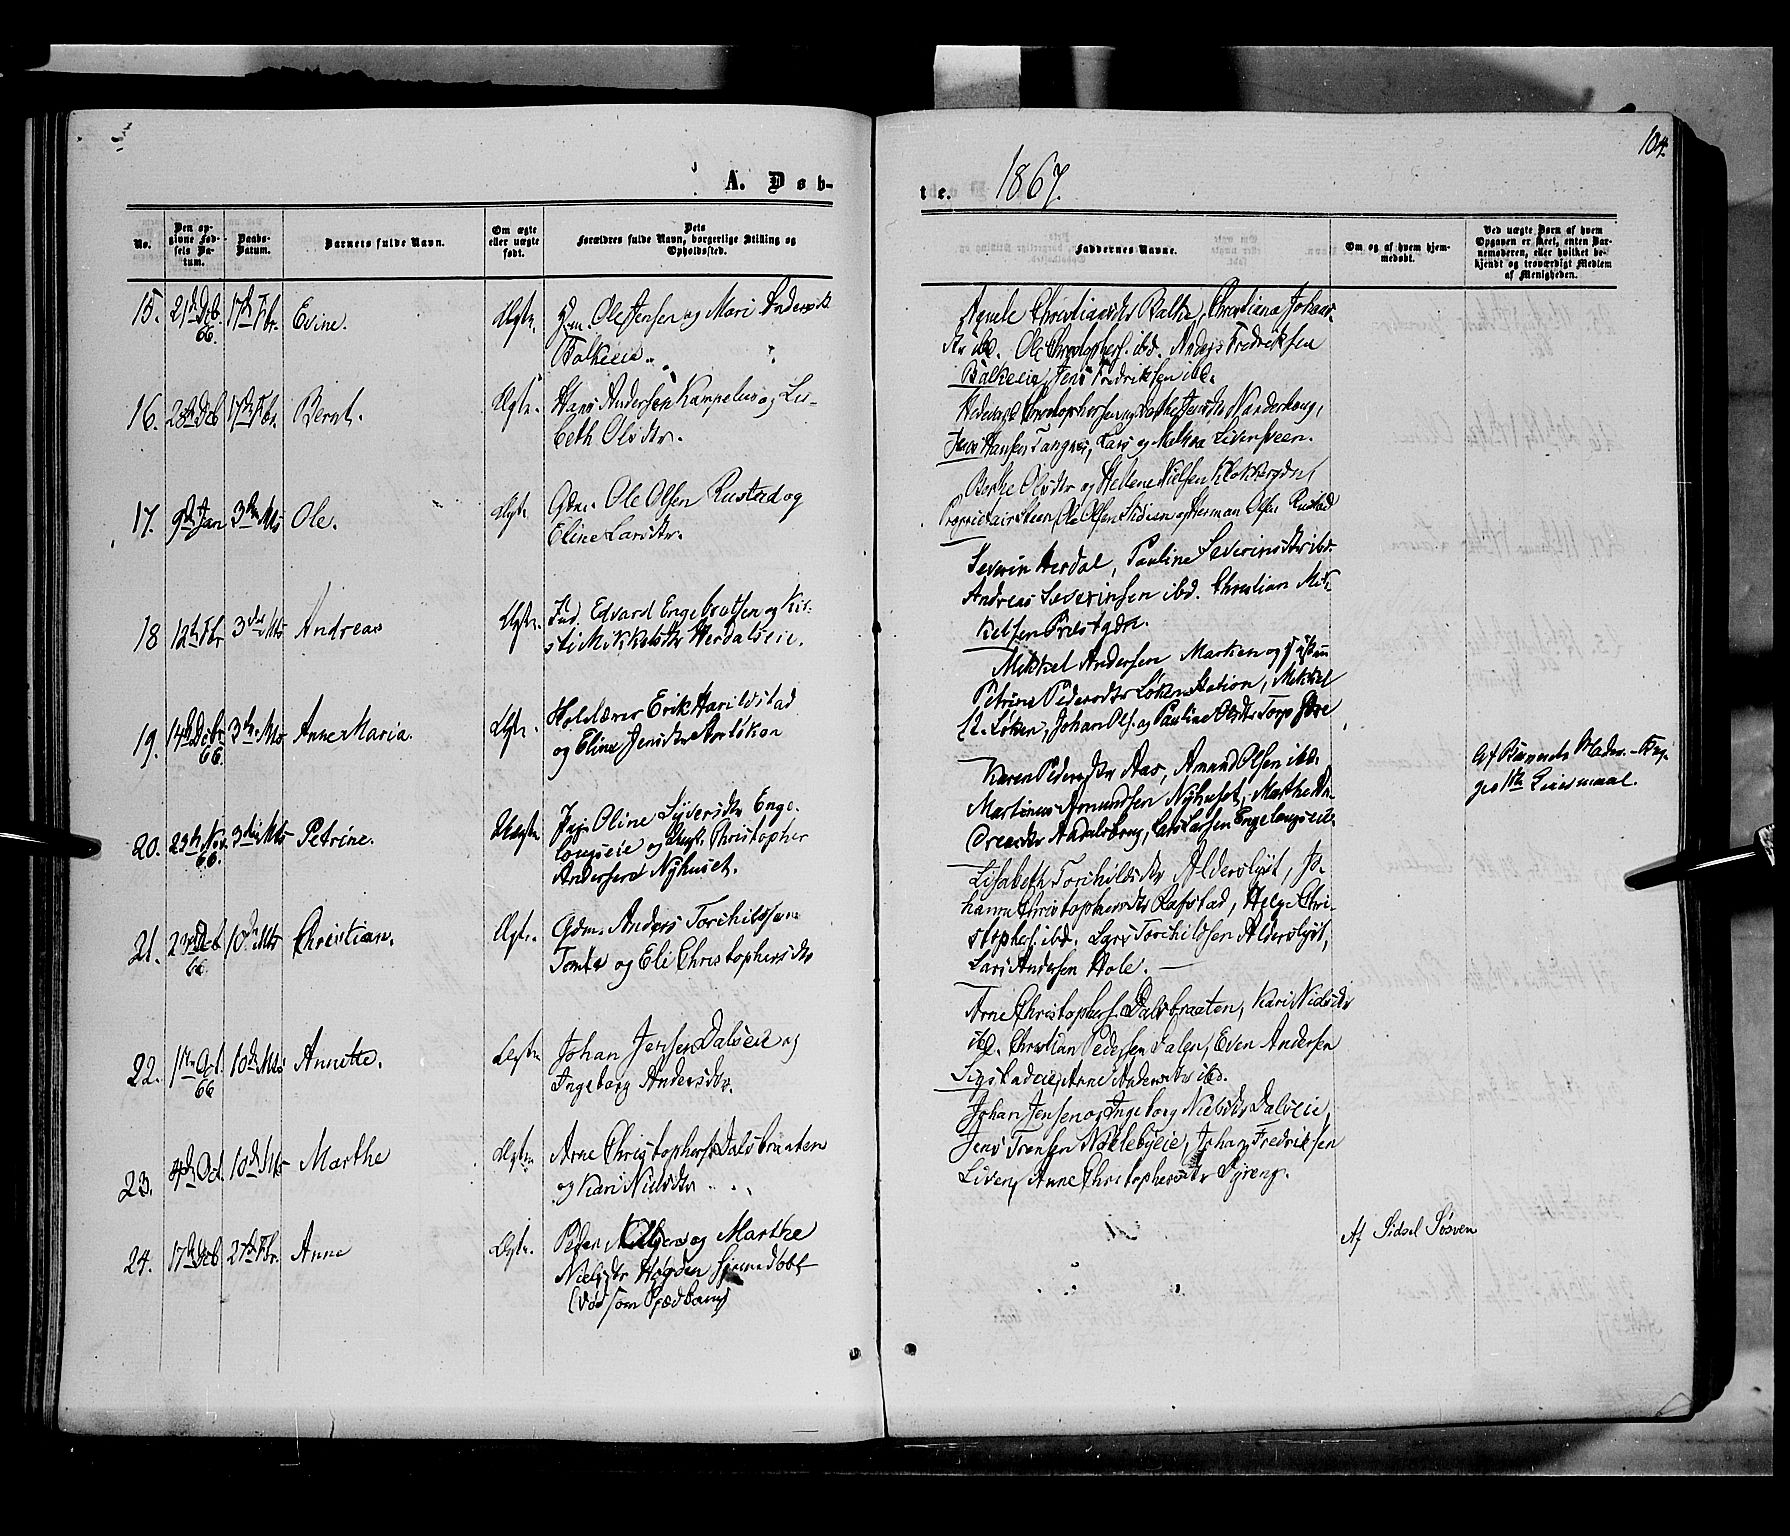 104.
A. Døb-
te. 1867.
No.
Den op-
givne Fød-
sels Da-
tum.
Daabs-
Datum.
Barnets fulde Navn.
Om ægte
eller uægte
født.
Dets
Forældres fulde Navn, borgerlige Stilling og
Opholdssted.
Faddernes Navne.
Om og af hvem hjem-
medøbt.
Ved uægte Børn af hvem
Opgaven er skeet, enten Bar-
nemoderen, eller hvilket be-
kjendt og troværdigt Medlem
af Menigheden.
15. 21de Deb 66. 17de Fbr. Evine. Ægte. Ole Jensen og Mari Andersdtr
Balkeeie.
Christiansdtr Balke, Christiane Johans-
dtr ibd. Ole Christophers. ibd. Anders Fredriksen
Balkeeie, Jens Fredriksen ibd.
16. 28de Deb 17de Fbr. Bernt. Ægte. Hans Andersen og Lis-
beth Olsdtr.
Christophersen og
Jens Hansen Tangnes, Lars og
17. 9de Jan 3die Mts Ole. Ægte. Gdm. Ole Olsen Rustad og
Eline Larsdtr.
Berthe Olsdtr og Hellene Nielsen
Proprietair Steen, Ole Olsen og Herman Olsen Rustad
18 12te Fbr 3die Mts Andreas Ægte. Ind. Edvard Engebretsen og Kir-
sti Mikkelsdtr Herdalseie.
Severin Herdal, Pauline Severinsdtr ibd.
Andreas Severinsen ibd. Christian Mik-
kelsen Præstgdn.
19. 14de Debr 66. 3die Mts Anne Maria. Ægte. Holdlærer Erik
og Eline Jensdtr
Mikkel Andersen Marken og
Petrine Pedersdtr Løken Station, Mikkel
Løken, Johan Ols. og Pauline Olsdtr Torp
20. 23de Nov. 66. 3die Mts Petrine. Uægte. Pige Oline Syversdtr Enge-
longseie og Christopher
Andersen Nyhuset.
Karen Pedersdtr Aas, Amund Olsen ibd.
Martinus Amundsen Nyhuset, Marthe An-
dreasdtr Aadalsbrug, Lars Larsen Engelongseie
Af Barnets Moder. Beg-
ges 1ste Leiermaal.
21. 23de Deb 66. 10de Mts Christian. Ægte. Gdm. Anders Torchildsen
Tomte og Eli Christophersdtr
Lisabeth Torchildsdtr Alderslyst, Jo-
hanne Christophersdtr Rafstad, Helge Chri-
stophers. ibd. Lars Torchildsen Alderslyst,
Lars Andersen Hole.
22. 1ste Oct. 66 10de Mts Annette. Ægte Johan Jensen Dalseie og
Ingeborg Andersdtr.
Arne Christophers. Dalsbraaten, Kari Nielsdtr
ibd. Christian Pedersen Dalen, Even Andersen
Sigstadeie, Arne Andersdtr ibd.
23. 4de Oct. 10de Mts Marthe Ægte. Arne Christophers. Dalsbraaten
og Kari Nielsdtr
Johan Jensen og Ingeborg Nielsdtr Dalseie,
Jens Nøklebyeie, Johan Fredriksen
Liven, Anne Christophersdtr Dyreng.
24. 17de Deb 27de Fbr. Anne Ægte. Peder og Marthe
Nielsdtr Høgden hjemmedøbt
(død som Spædbarn)
Af Sidsel Søsven